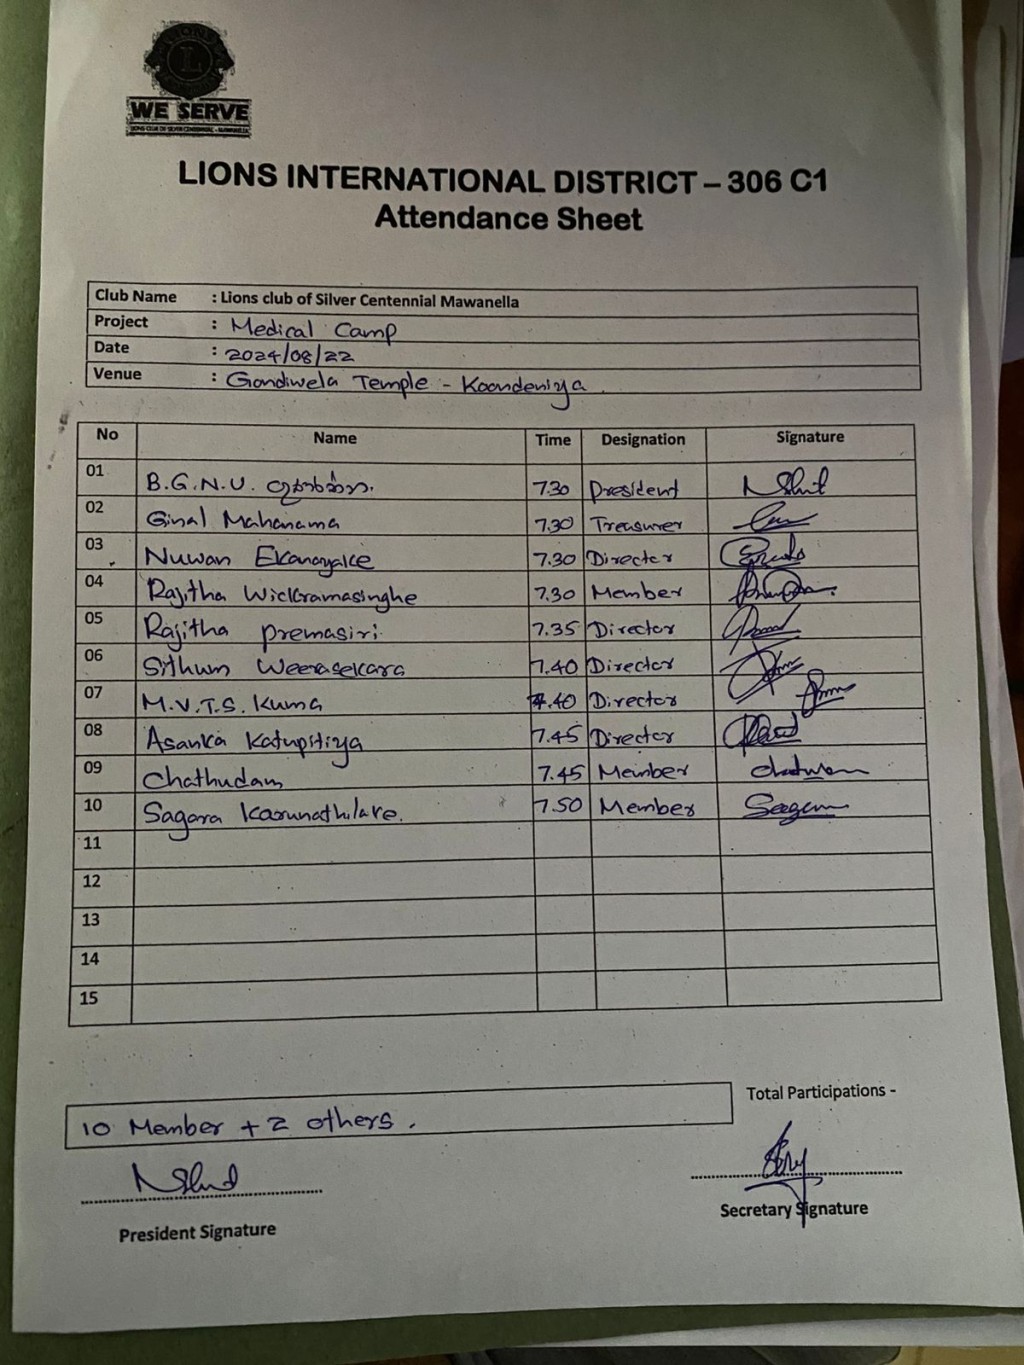 WE SERVE
LIONS CLUB OF SILVER CENTENNIAL - MAWANELLA
LIONS INTERNATIONAL DISTRICT – 306 C1
Attendance Sheet
Club Name : Lions club of Silver Centennial Mawanella
Project : Medical Camp
Date : 2024/08/22
Venue : Gondiwela Temple - Koondeniya
No Name Time Designation Signature
01 B.G.N.U. 7.30 President
02 Ginal Mahanama 7.30 Treasurer
03 Nuwan Ekanayake 7.30 Director
04 Rajitha Wickramasinghe 7.30 Member
05 Rajitha premasiri 7.35 Director
06 Sithum Weerasekara 7.40 Director
07 M.V.T.S. Kuma 7.40 Director
08 Asanka Katupitiya 7.45 Director
09 Chathudam 7.45 Member
10 Sagara Karunathilake. 7.50 Member
11
12
13
14
15
Total Participations -
10 Member + 2 others.
President Signature
Secretary Signature